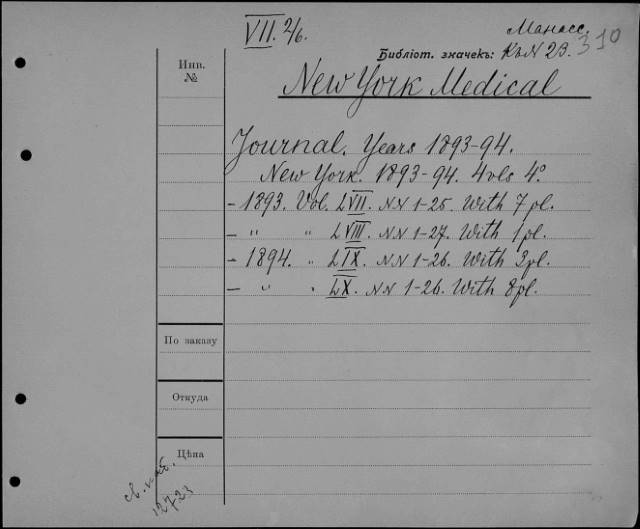 VII. 2/6.
Манасс.
Библіот. значекъ: К№N 2В. 310
Инв.
№
New York Medical
Journal. Years 1893-94.
New York. 1893-94. 4 vls 4º
- 1893. Vol. LVII. NN 1-25. With 7 pl.
- " " LVIII. NN 1-27. With 1 pl.
- 1894. " LIX. NN 1-26. With 2 pl.
- " " LX. NN 1-26. With 8 pl.
По заказу
Откуда
Цѣна
св. каб.
12723